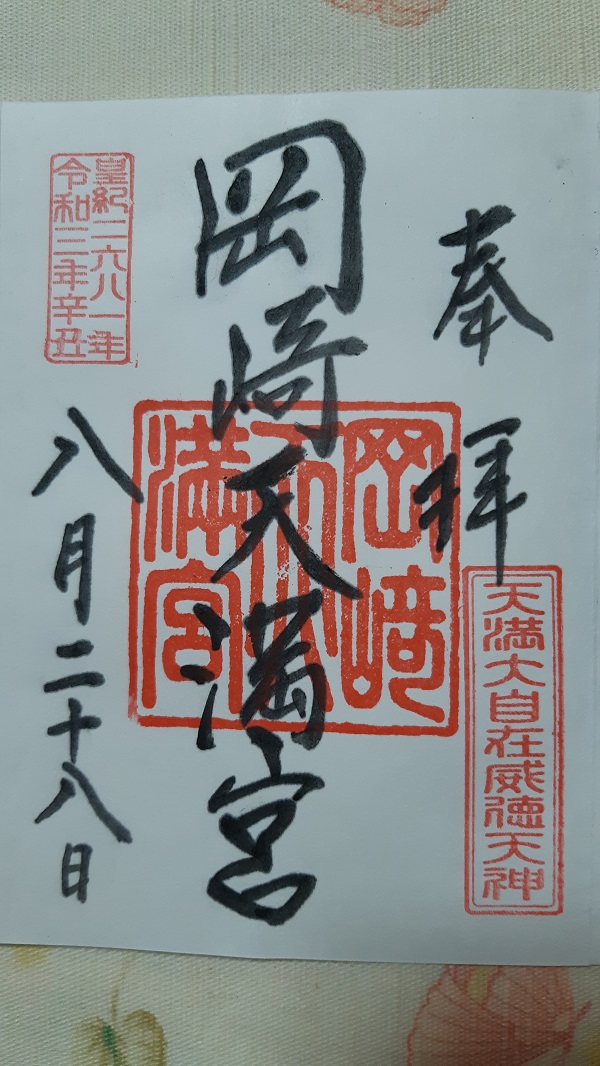 奉拝
天満大自在威徳天神
岡崎天満宮
岡﨑
天
満宮
皇紀二六八一年
令和三年辛丑
八月二十八日